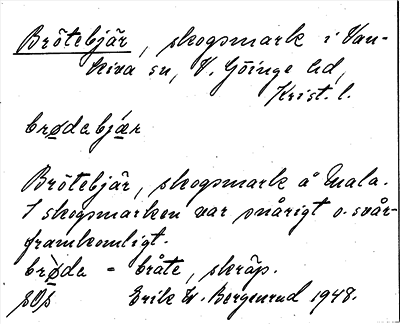 Brötebjär, skogsmark i Van-
kiva sn, V. Göinge hd,
Krist. l.
brødebjær
Brötebjär, skogsmark å Mala.
I skogsmarken var snårigt o. svår-
framkomligt.
brøde = bråte, skräp.
Erik W. Bergenrud 1948.